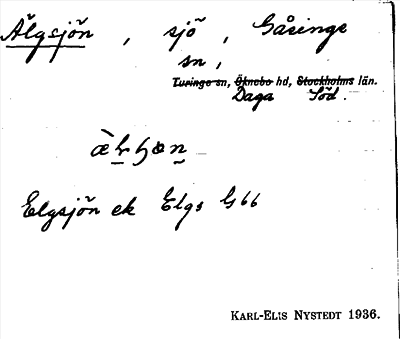 Älgsjön, sjö, Gåsinge
sn,
Turinge sn, Öknebo hd, Stockholms län.
Daga Söd.
Elgsjön ek Elgs G66
KARL-ELIS NYSTEDT 1936.